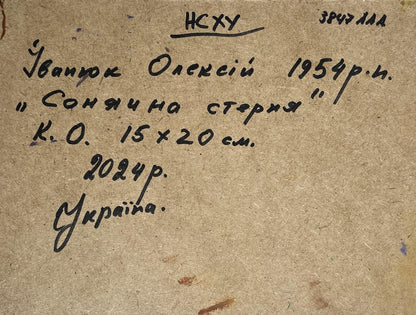 НСХУ 3847 ААА
Іванюк Олексій 1954 р.н.
„Сонячна стерня"
К.О. 15 x 20 см.
2024р.
Україна.